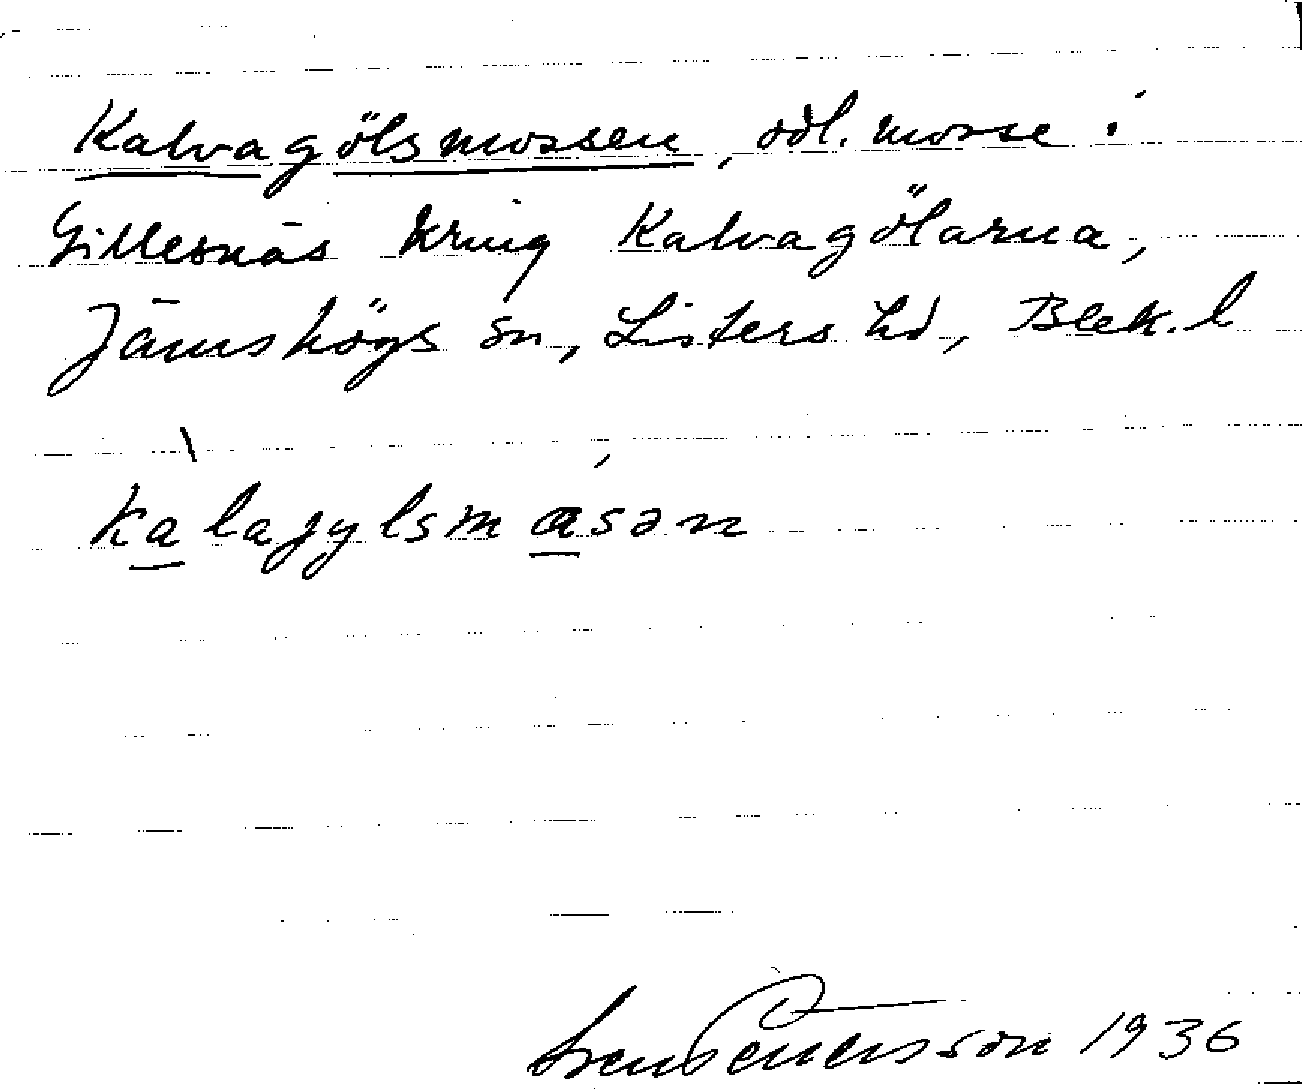 Kalvagölsmossen, odl. mosse i
Gillesnäs kring Kalvagölarna,
Jämshögs sn, Listers hd, Blek. l
kalagylsmasən
Sven Petersson 1936